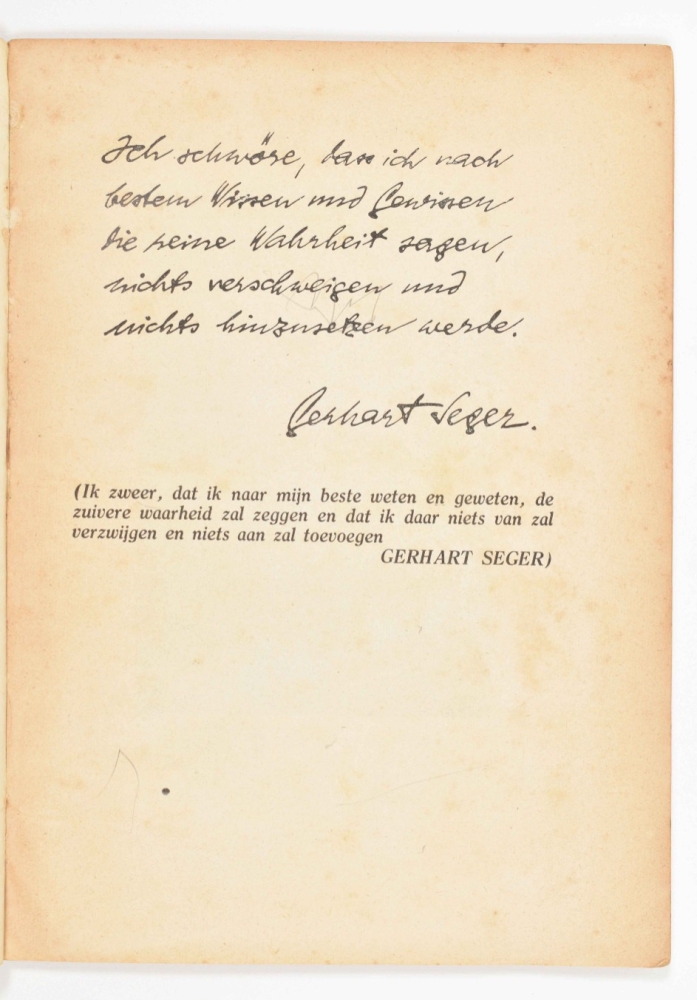 Ich schwöre, dass ich nach
bestem Wissen und Gewissen
die reine Wahrheit sagen,
nichts verschweigen und
nichts hinzusetzen werde.
Gerhart Seger.
(Ik zweer, dat ik naar mijn beste weten en geweten, de
zuivere waarheid zal zeggen en dat ik daar niets van zal
verzwijgen en niets aan zal toevoegen
GERHART SEGER)